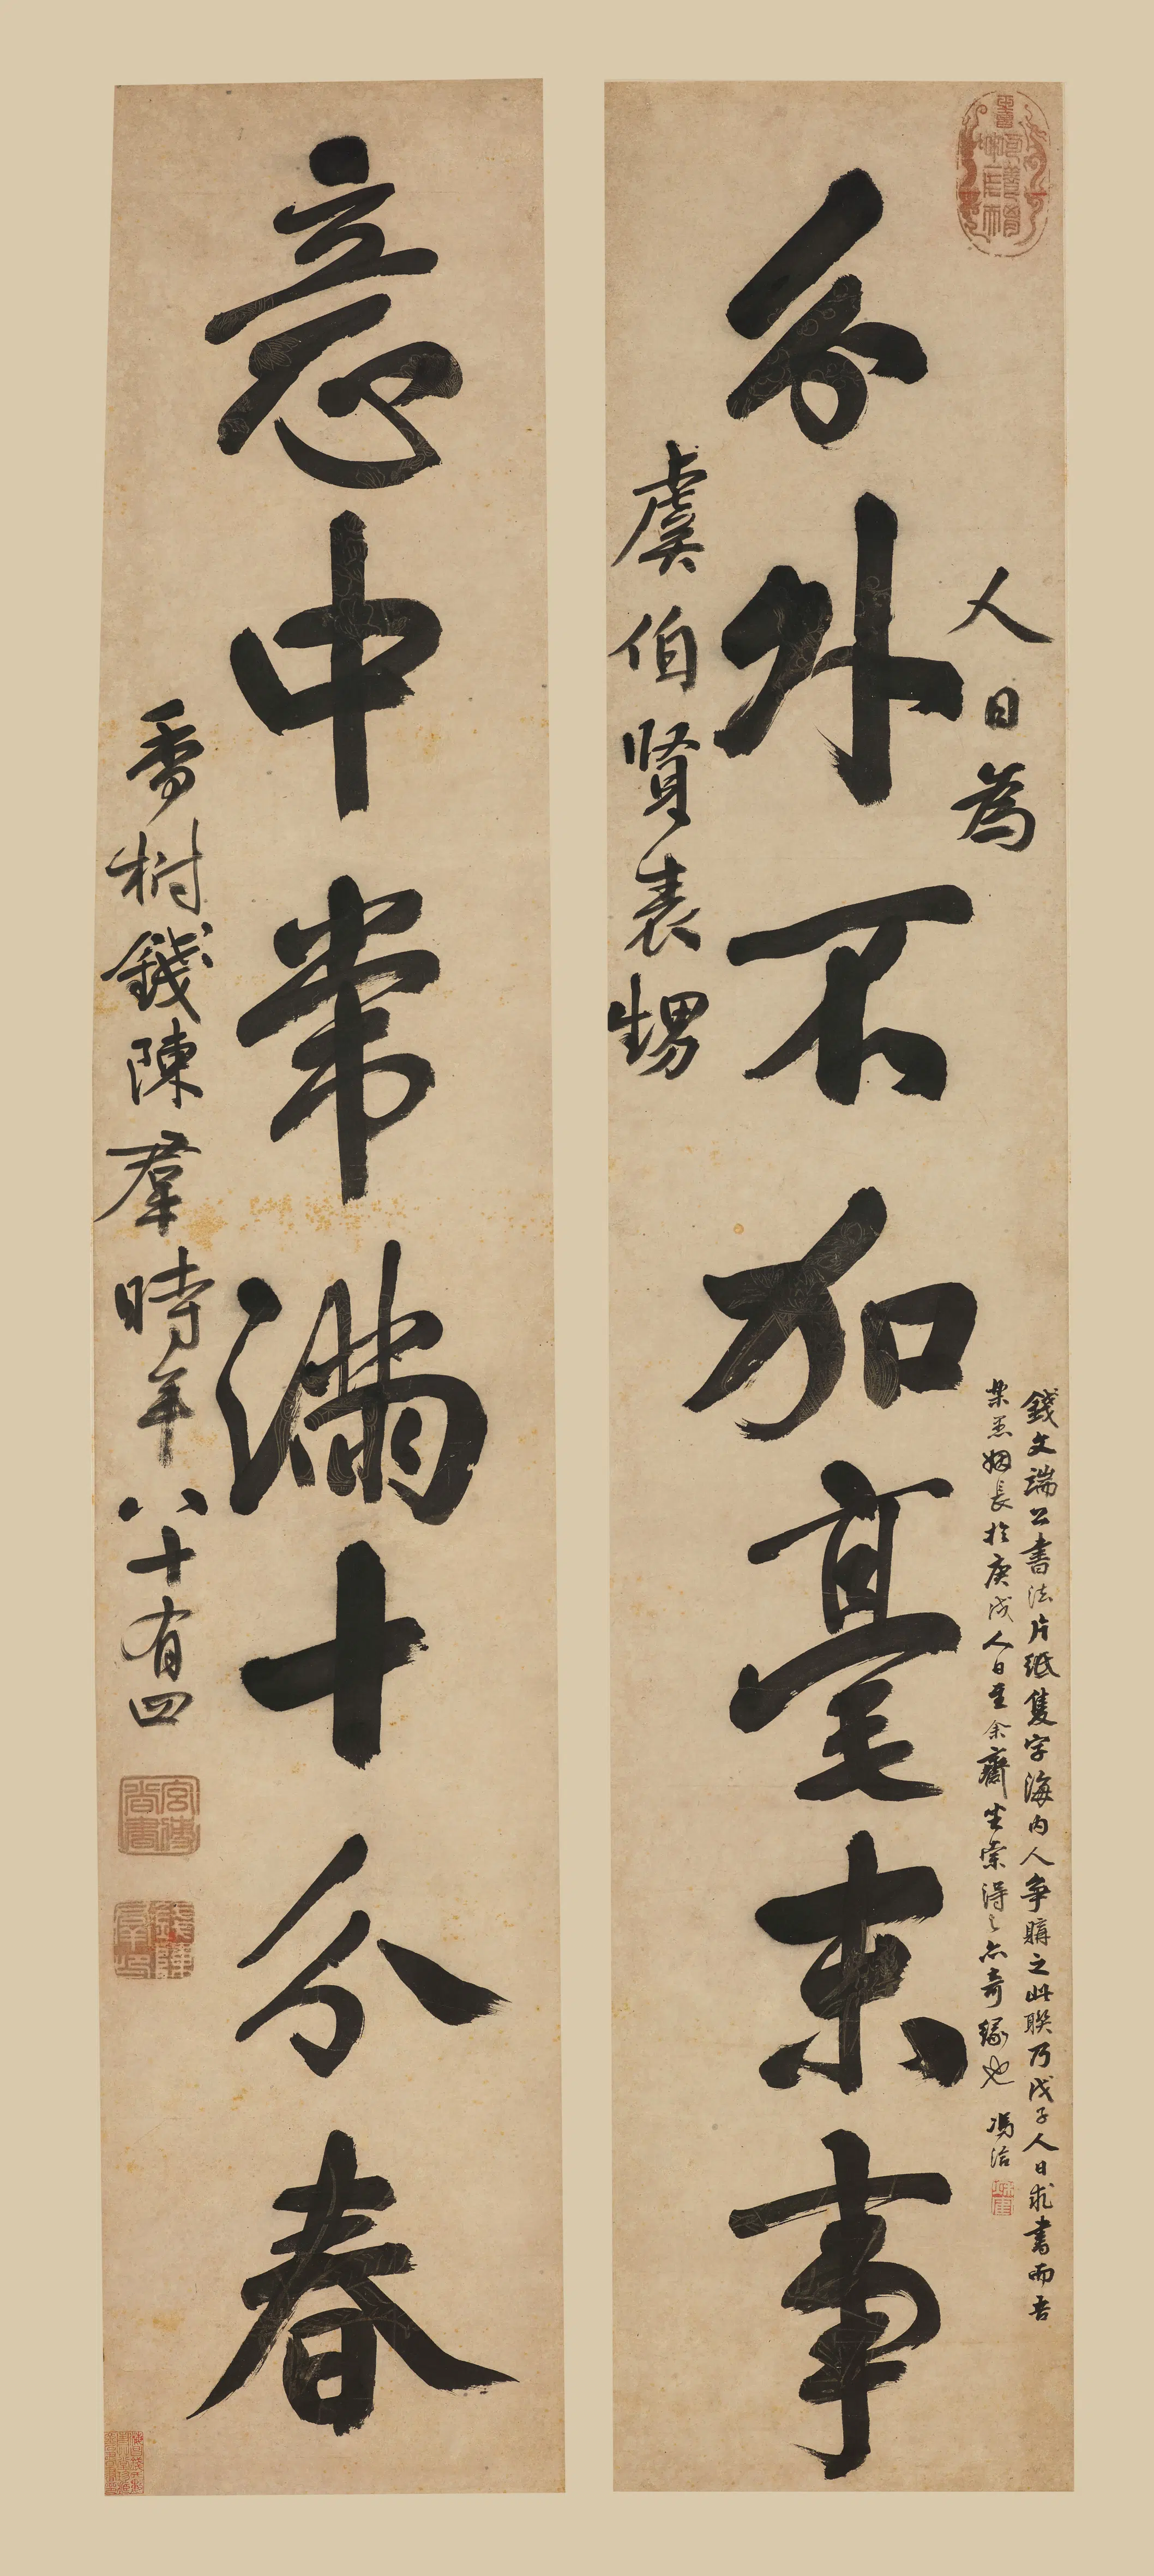 人日為
分外不加毫末事
虞伯賢表甥
錢文端公書法片紙隻字海内人爭購之此聯乃戊子人日求書而吾
姻長於庚戌人日至余齋坐索得之亦奇緣也 馮洽
意中常滿十分春
香樹錢陳羣時年八十有四
宮傅尚書
錢陳羣印